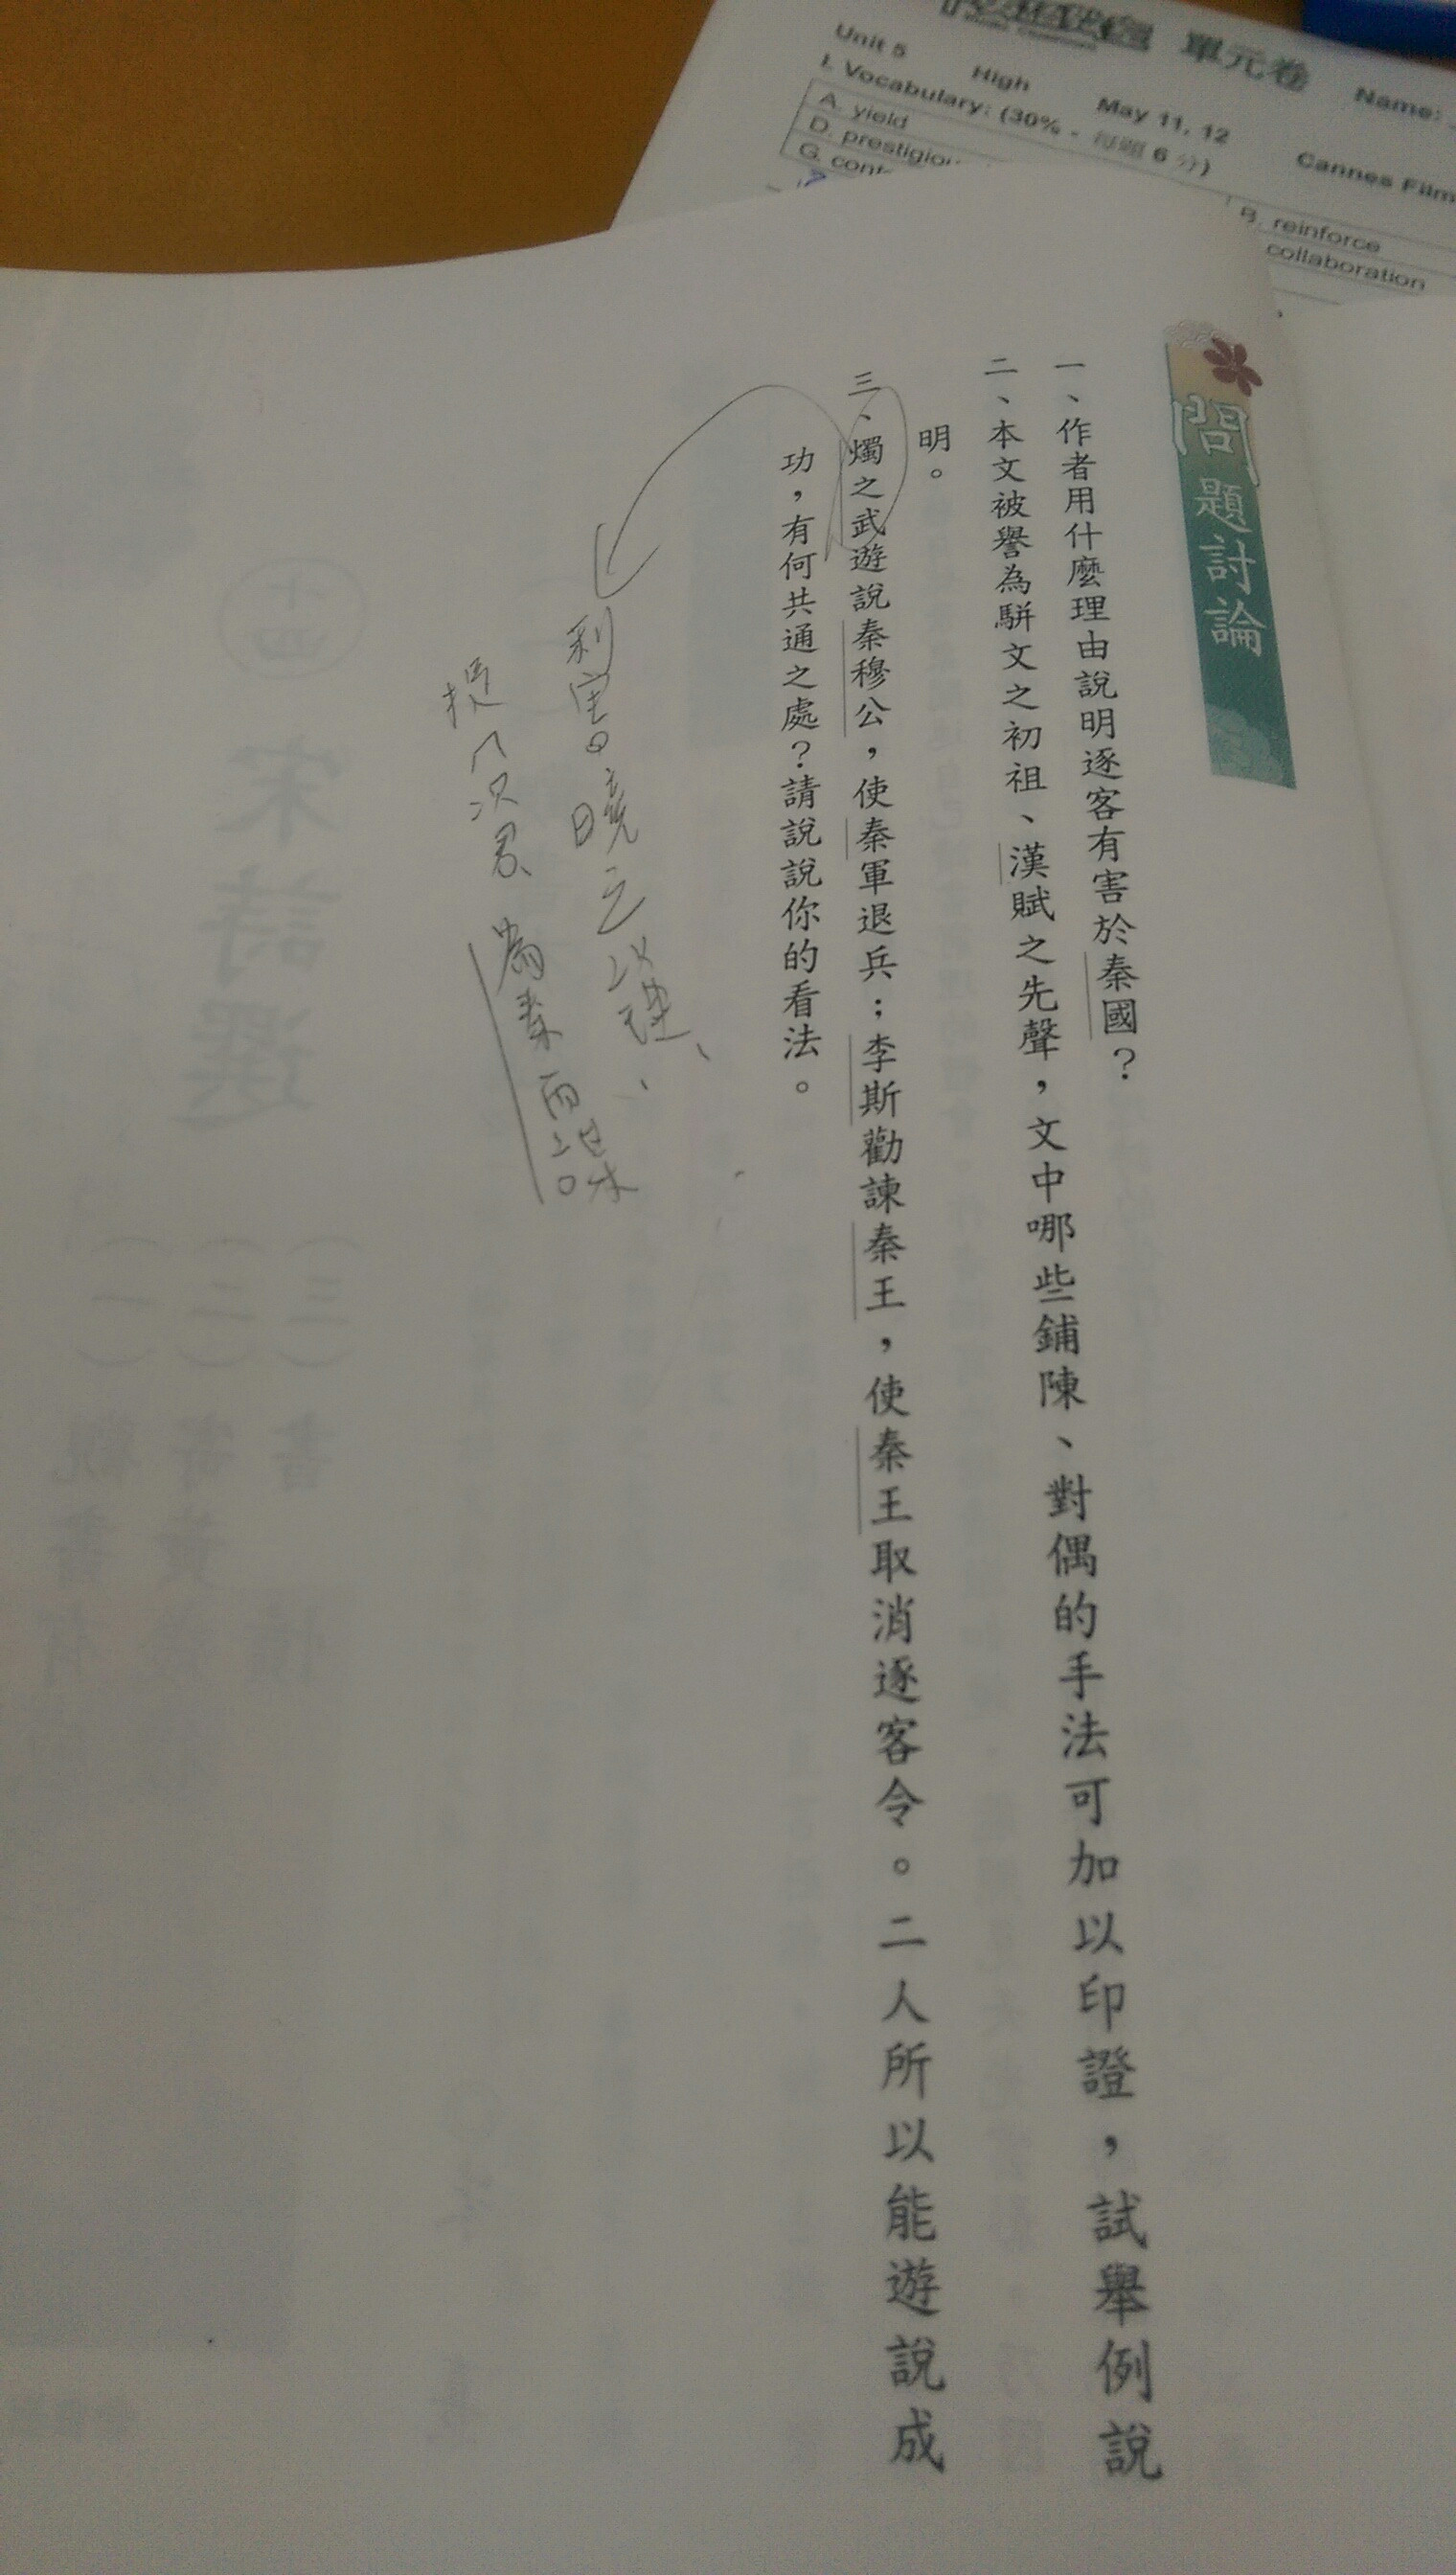 單元卷 Name:
Unit 5 High May 11, 12 Cannes Film
I. Vocabulary: (30% - 每題 6 分)
A. yield
B. reinforce
D. prestigiou
collaboration
G. cont
問題討論
一、作者用什麼理由說明逐客有害於秦國?
二、本文被譽為駢文之初祖、漢賦之先聲,文中哪些鋪陳、對偶的手法可加以印證,試舉例說
明。
三、燭之武遊說秦穆公,使秦軍退兵;李斯勸諫秦王,使秦王取消逐客令。二人所以能遊說成
功,有何共通之處?請說說你的看法。
利害 曉之以理、
為秦而謀
十四
宋詩選